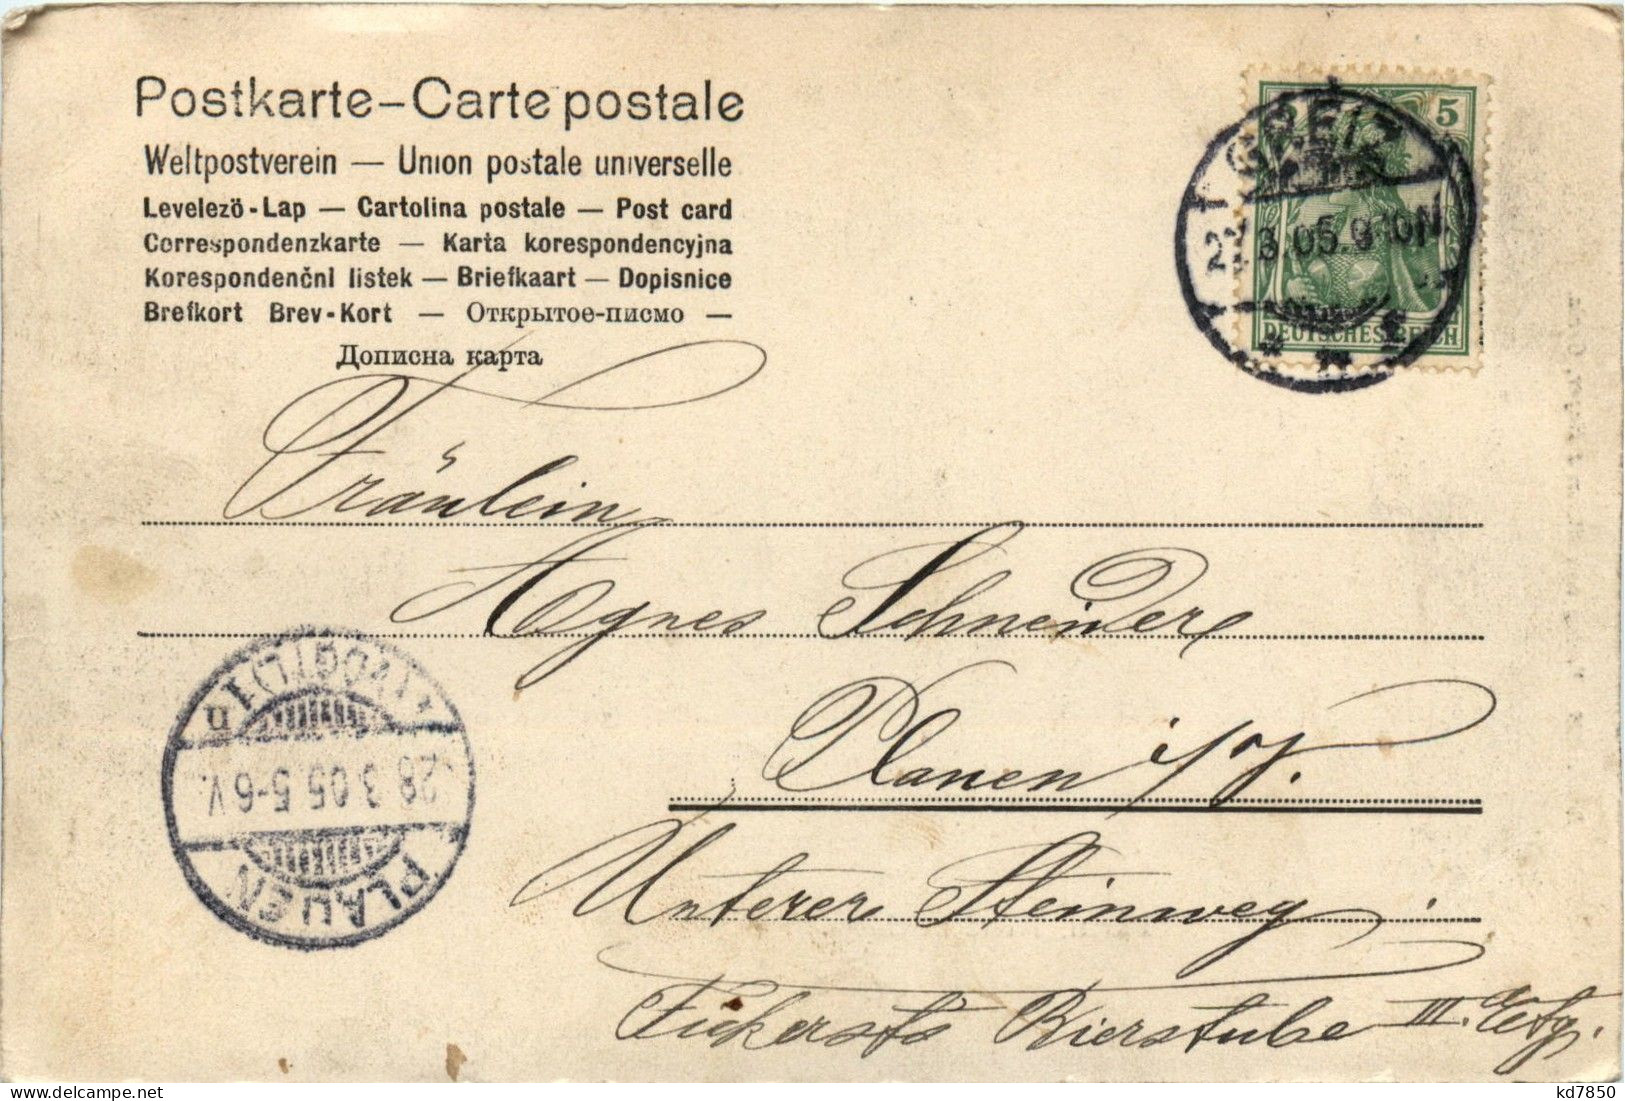 Postkarte – Carte postale
Weltpostverein — Union postale universelle
Levelező-Lap — Cartolina postale — Post card
Correspondenzkarte — Karta korespondencyjna
Korespondenčni listek — Briefkaart — Dopisnice
Brefkort Brev-Kort — Открытое-писмо —
Дописна карта
5
GREIZ
3.05.9-10N.
DEUTSCHES REICH
Fräulein
Agnes Schneider
Plauen i/V.
Unterer Steinweg
Bierstube III. Etg.
(VOGTL) 1
28 3 05 5-6 V.
PLAUEN
kd7850